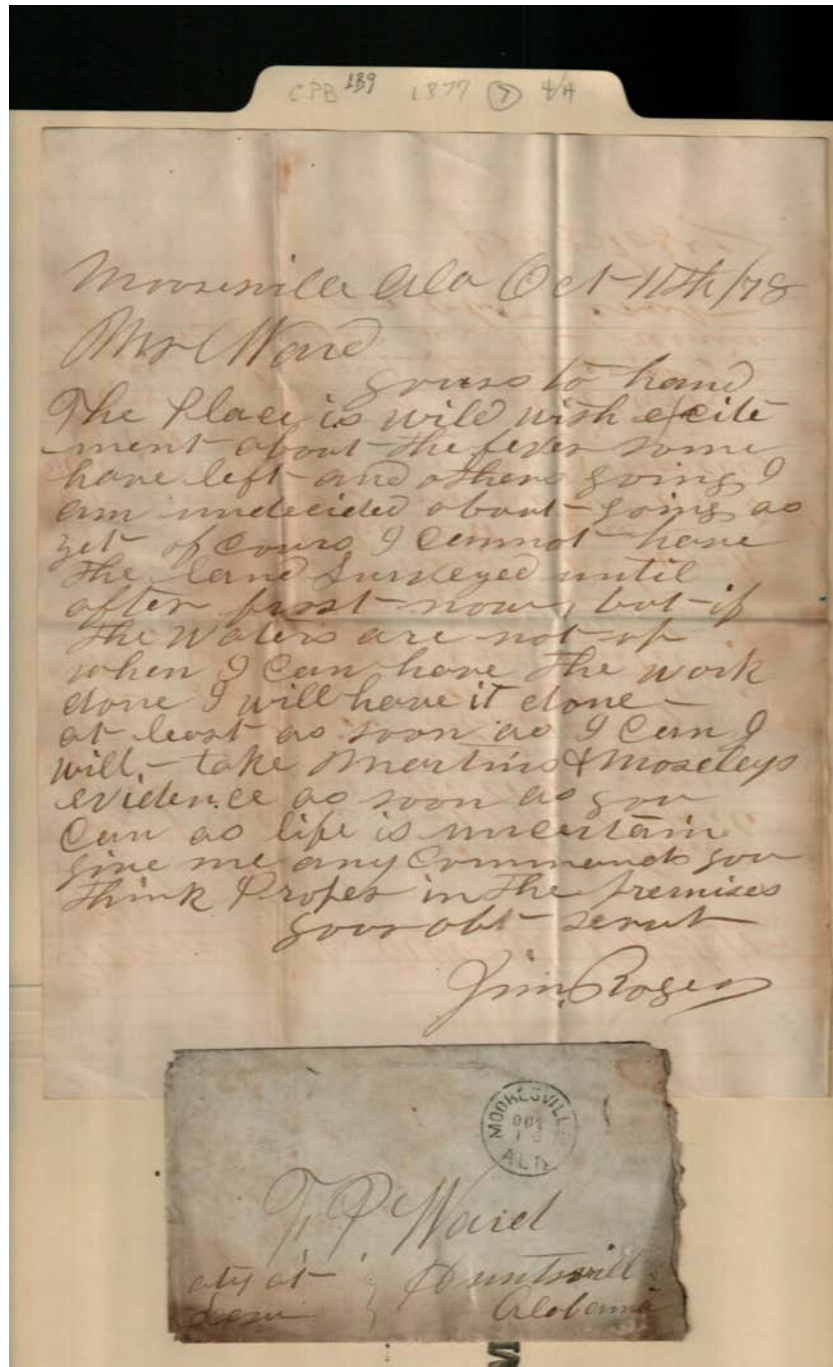 CPB 139 1877 (7) 4/A
Mooresville Ala Oct 11th/78
Mr Ward
yours to hand
The Place is wild with excite
-ment about the fever some
have left and others going I
am undecided about going as
yet of cours I cannot have
the land Surveyed until
after frost now, but if
the Waters are not up
when I can have the work
done I will have it done -
at least as soon as I can I
will - take Martins & Moseleys
evidence as soon as you
can as life is uncertain
give me any Commands you
think Proper in the premises
your obt servt
Jim. Rogers
MOORESVILLE
ALA
T. P. Ward
aty at
Law
Huntsvill
Alabama